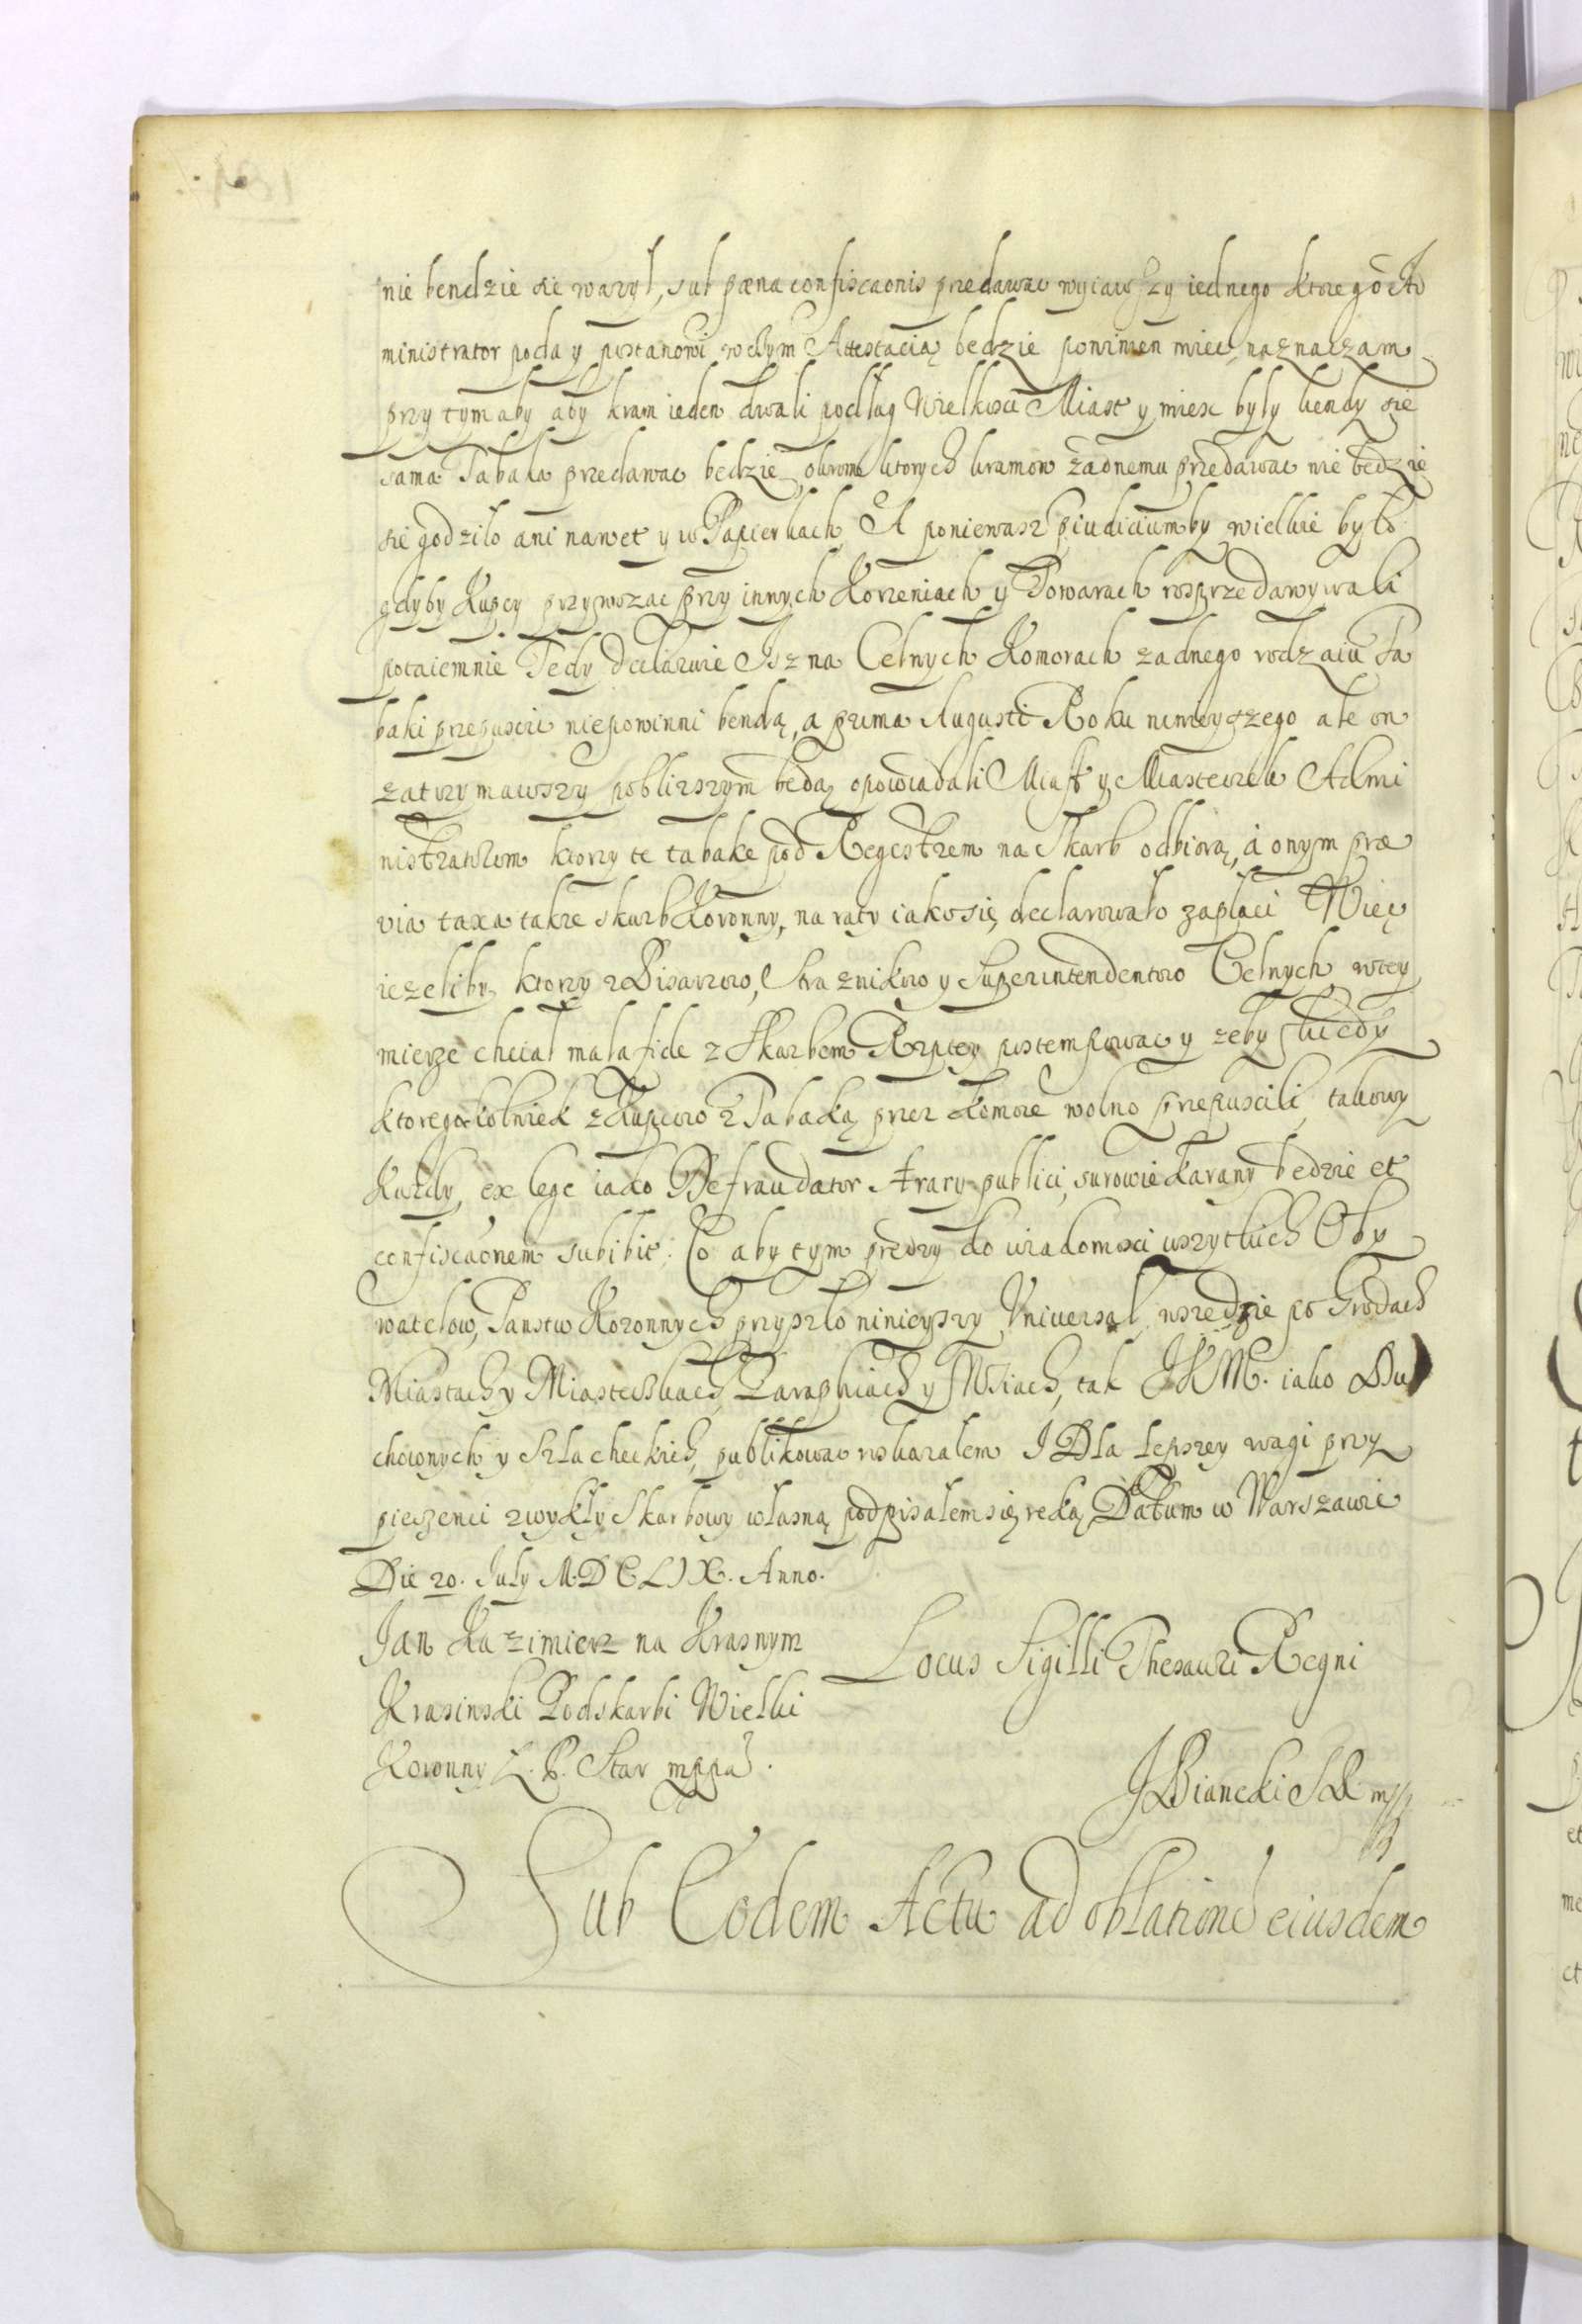 nie bendzie sie wazył, sub pæna confiscaonis przedawac wyiawszy iednego ktorego Ad
ministrator poda y postanowi wczym Attestacią bedzie powinien miec, naznaczam
przy tym aby aby kram ieden dwa li podług Wielkosci Miast y miesc były kendy sie
sama Tabaka przedawac bedzie okrom ktorych kramow żadnemu przedawac nie bedzie
sie godziło ani nawet y w Papierkach A poniewasz Piudicium by wielkie było
gdyby Kupcy przywozac przy innych Korzeniach y Towarach rosprzedawywali
potaiemnie Tedy declaruie Isz na Celnych Komorach zadnego rodzaiu Ta
baki przepuscic niepowinni bendą, a prima Augusti Roku ninieyszego ale on
zatrzymawszy pobliszszym bedą opowiadali Miast y Miasteczek Admi
nistratorom ktorzy te tabake pod Regestrem na Skarb odbiorą, a onym præ
via taxa takze skarb Koronny, na raty iako się declarowało zapłaci Więc
iezeliby ktorzy z Pisarzow, Straznikow y Superintendentow Celnych wtey
mierze chciał mala fide z Skarbem Rzptey postempowac y zeby kiedy
ktoregokolwiek z Kupcow z Tabaką przez Komore wolno przepuscili, takowy
Kazdy, ex lege iako Defraudator Ærary publici, surowie karany bedzie et
confiscaonem subibit: Co aby tym prędzy do wiadomosci wszytkich Oby
watelow, Panstw Koronnych przyszło ninieyszy Vniuersał, wszedzie po Grodach
Miastach y Miasteczkach, Paraphiach y Wsiach, tak JKM. iako Du
chownych y Szlacheckich, publikowac roskazałem I Dla lepszey wagi przy
pieczenci zwykły Skarbowy własną podpisałem się reką Datum w Warszawie
Die 20. July M.DCLIX. Anno.
Jan Kazimierz na Krasnym
Krasinski Podskarbi Wielki
Koronny Ł. P. Star mppa.
Locus Sigilli Thesauri Regni
J Bianchi mp
Sub Eodem Actu ad oblationē eiusdem